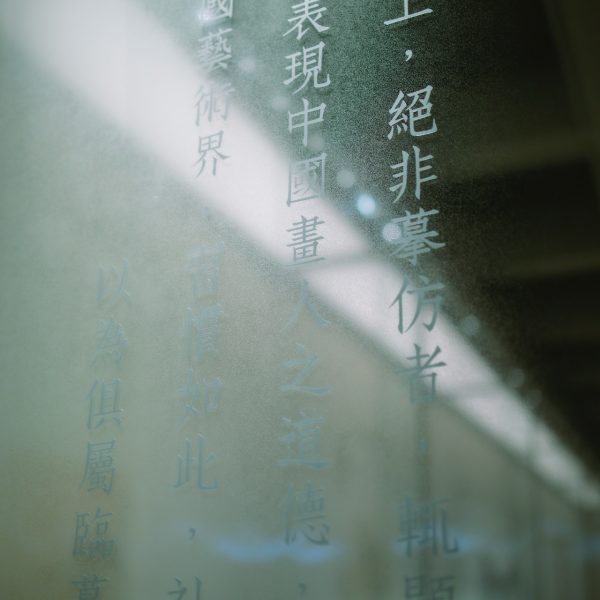 上，絕非摹仿者，輒
表現中國畫人之道德，
國藝術界，習慣如此，
以為俱屬臨摹